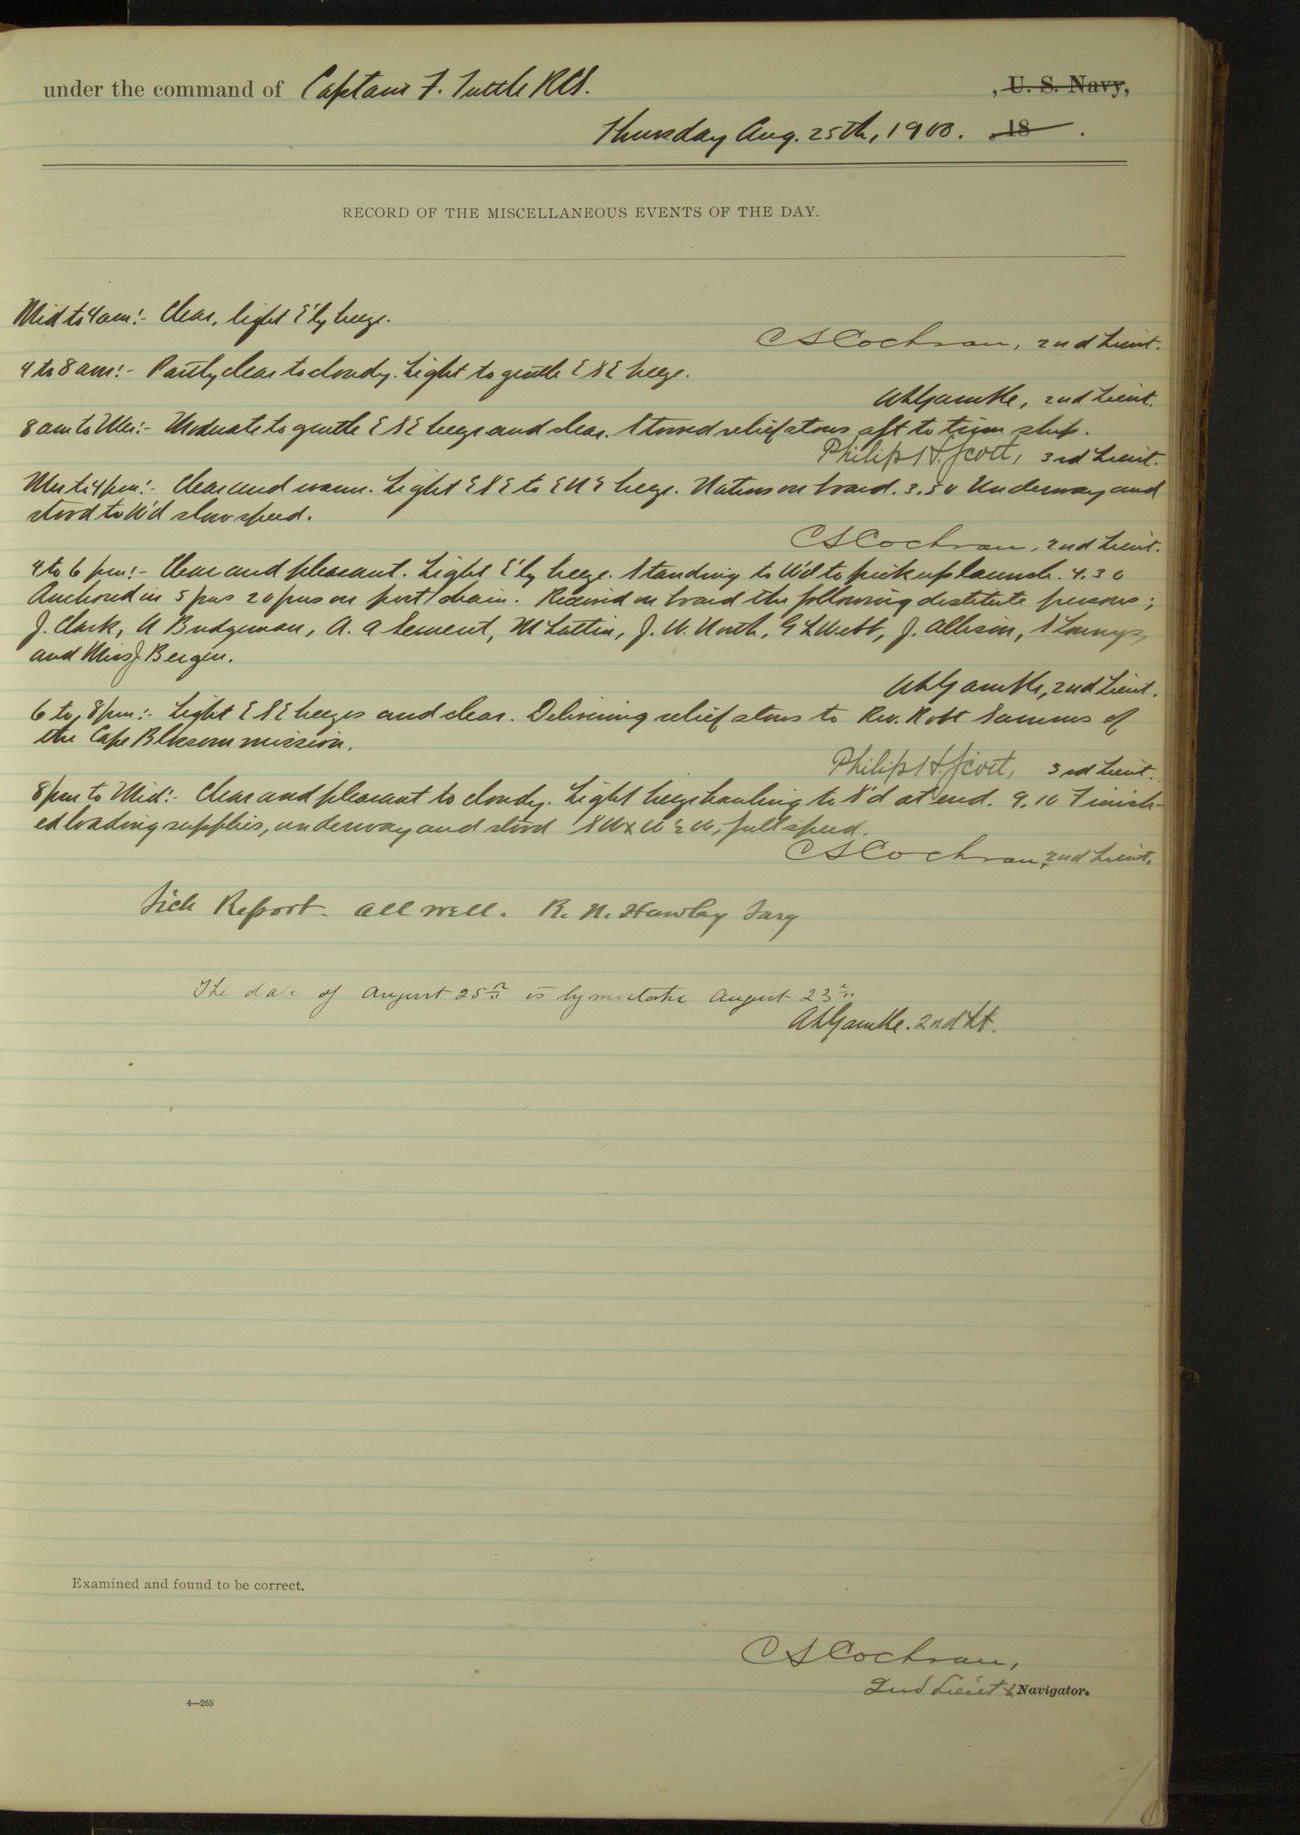 under the command of Captain F. Tuttle RCS. , U. S. Navy,
Thursday Aug. 25th, 1900. , 18 .
RECORD OF THE MISCELLANEOUS EVENTS OF THE DAY.
Mid to 4 am:- Clear, light E'ly breeze.
C S Cochran, 2nd Lieut.
4 to 8 am:- Partly clear to cloudy. Light to gentle E S E breeze.
2nd Lieut.
8 am to Mer:- Moderate to gentle E S E breeze and clear. Stowed relief stores aft to trim ship.
Philip H. Scott, 3rd Lieut.
Mer to 4 pm:- Clear and warm. Light E S E to E N E breeze. Natives on board. 3.50 Underway and
stood to W'd slow speed.
C S Cochran, 2nd Lieut.
4 to 6 pm:- Clear and pleasant. Light E'ly breeze. Standing to W'd to pick up launch. 4.30
Anchored in 5 fms 20 fms on port chain. Received on board the following destitute persons;
J. Clark, A Bridgeman, A. A Sement, M Lattin, J. W. North, G L Webb, J. Allison, S
and Miss J Bergen.
2nd Lieut.
6 to 8 pm:- Light E S E breezes and clear. Delivering relief stores to Rev. Robt Samms of
the Cape Blossom mission.
Philip H. Scott, 3rd Lieut.
8 pm to Mid:- Clear and pleasant to cloudy. Light breeze hauling to S'd at end. 9.10 Finish-
ed loading supplies, underway and stood SW x W ½ W, full speed.
C S Cochran, 2nd Lieut.
Sick Report. All well. R. N. Hawley Surg
The date of August 25th is by mistake August 23rd.
2nd Lt.
Examined and found to be correct.
C S Cochran,
2nd Lieut & Navigator.
4—265